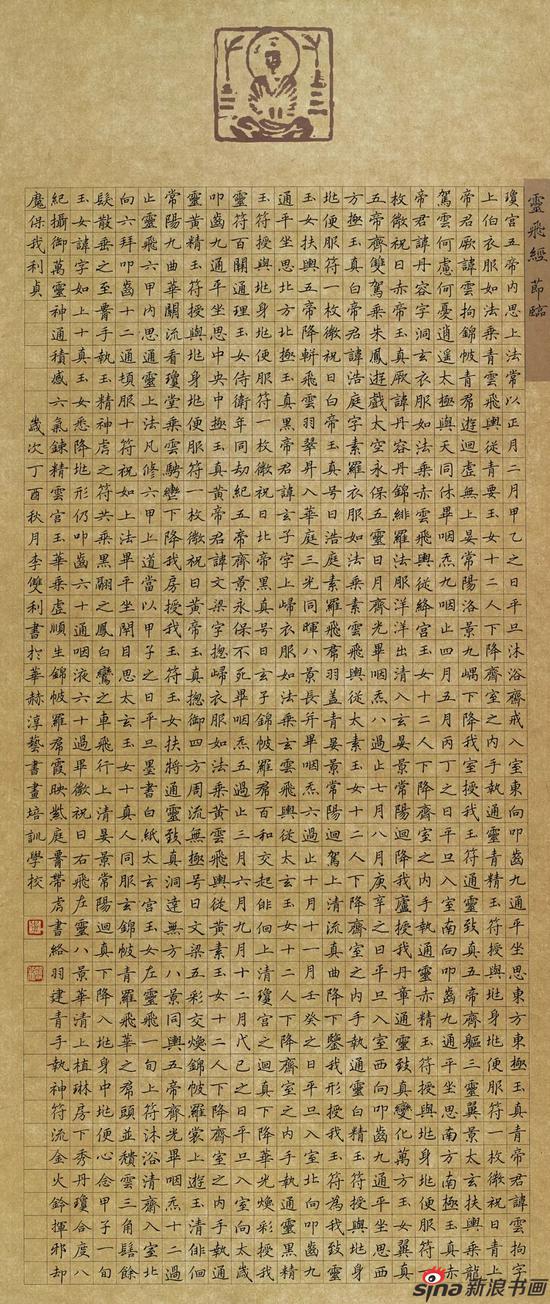 靈飛經 節臨
瓊宮五帝內思上法常以正月二月甲乙之日平旦沐浴齋戒入室東向叩齒九通平坐思東方東極玉真青帝君諱雲拘字
上伯衣服如法乘青雲飛輿從青要玉女十二人下降齋室之內手執通靈青精玉符授與兆身兆便服符一枚微祝曰青上
帝君厥諱雲拘錦帔青帬遊迴虛無上晏常陽洛景九嵎下降我室授我玉符通靈致真五帝齊軀三靈翼景太玄扶輿乘龍
駕雲何慮何憂逍遙太極與天同休畢咽炁九咽止四月五月丙丁之日平旦入室南向叩齒九通平坐思南方南極玉真赤
帝君諱丹容字洞玄衣服如法乘赤雲飛輿從絳宮玉女十二人下降齋室之內手執通靈赤精玉符授與兆身兆便服符一
枚微祝曰赤帝玉真厥諱丹容丹錦緋羅法服洋洋出清入玄晏景常陽迴降我廬授我丹章通靈致真變化萬方玉女翼真
五帝齊雙駕乘朱鳳遊戲太空永保五靈日月齊光畢咽炁八過止七月八月庚辛之日平旦入室西向叩齒九通平坐思西
方極玉真白帝君諱浩庭字素羅衣服如法乘素雲飛輿從太素玉女十二人下降齋室之內手執通靈白精玉符授與兆身
兆便服符一枚微祝曰白帝玉真号曰浩庭素羅飛帬羽蓋青晏景常陽迴駕上清流真曲降下鑒我形授我玉符為我致靈
玉女扶輿五帝降軿飛雲羽翠昇入華庭三光同暉八景長并畢咽炁六過止十月十一月壬癸之日平旦入室北向叩齒九
通平坐思北方北極玉真黑帝君諱玄子字上歸衣服如法乘玄雲飛輿從太玄玉女十二人下降齋室之內手執通靈黑精
玉符授與兆身兆便服符一枚微祝曰北帝黑真号曰玄子錦帔羅帬百和交起徘徊上清瓊宮之迴真下降華光煥彩授我
玉符百關通理玉女侍衛年同劫紀五帝齊景永保不死畢咽炁五過止三月六月九月十二月戊己之日平旦入室向太歲
叩齒九通平坐思中央中極玉真黃帝君諱文梁字揔歸衣服如法乘黃雲飛輿從黃素玉女十二人下降齋室之內手執通
靈黃精玉符授與兆身兆便服符一枚微祝曰黃帝玉真揔御四方周流無極号曰文梁五彩交煥錦帔羅裳上遊玉清徘徊
常陽九曲華關流看瓊堂乘雲騁轡下降我房授我玉符玉女扶將通靈致真洞達無方八景同輿五帝齊光畢咽炁十二過
止靈飛六甲內思通靈上法凡修六甲上道當以甲子之日平旦墨書白紙太玄宮玉女左靈飛一旬上符沐浴清齋入室北
向六拜叩齒十二通頓服十符祝如上法畢平坐閉目思太玄玉女十真人同服玄錦帔青羅飛華之帬頭並積雲三角髻餘
髮散垂之至要手執玉精神虎符共乘黑翮之鳳白鸞之車飛行上清晏景常陽迴真下降入兆身中兆便心念甲子一旬
玉女諱字如上十真玉女悉降兆形仍叩齒六十通咽液六十過畢微祝曰右飛左靈八景華清上植琳房下秀丹瓊合度八
紀攝御萬靈神通積感六氣鍊精雲宮玉華乘虛順生錦帔羅帬霞映紫庭腰帶虎書絡羽建青手執神符流金火鈴揮邪却
魔保我利貞 歲次丁酉秋月李雙利書於華赫淳藝書畫培訓學校
sina新浪书画